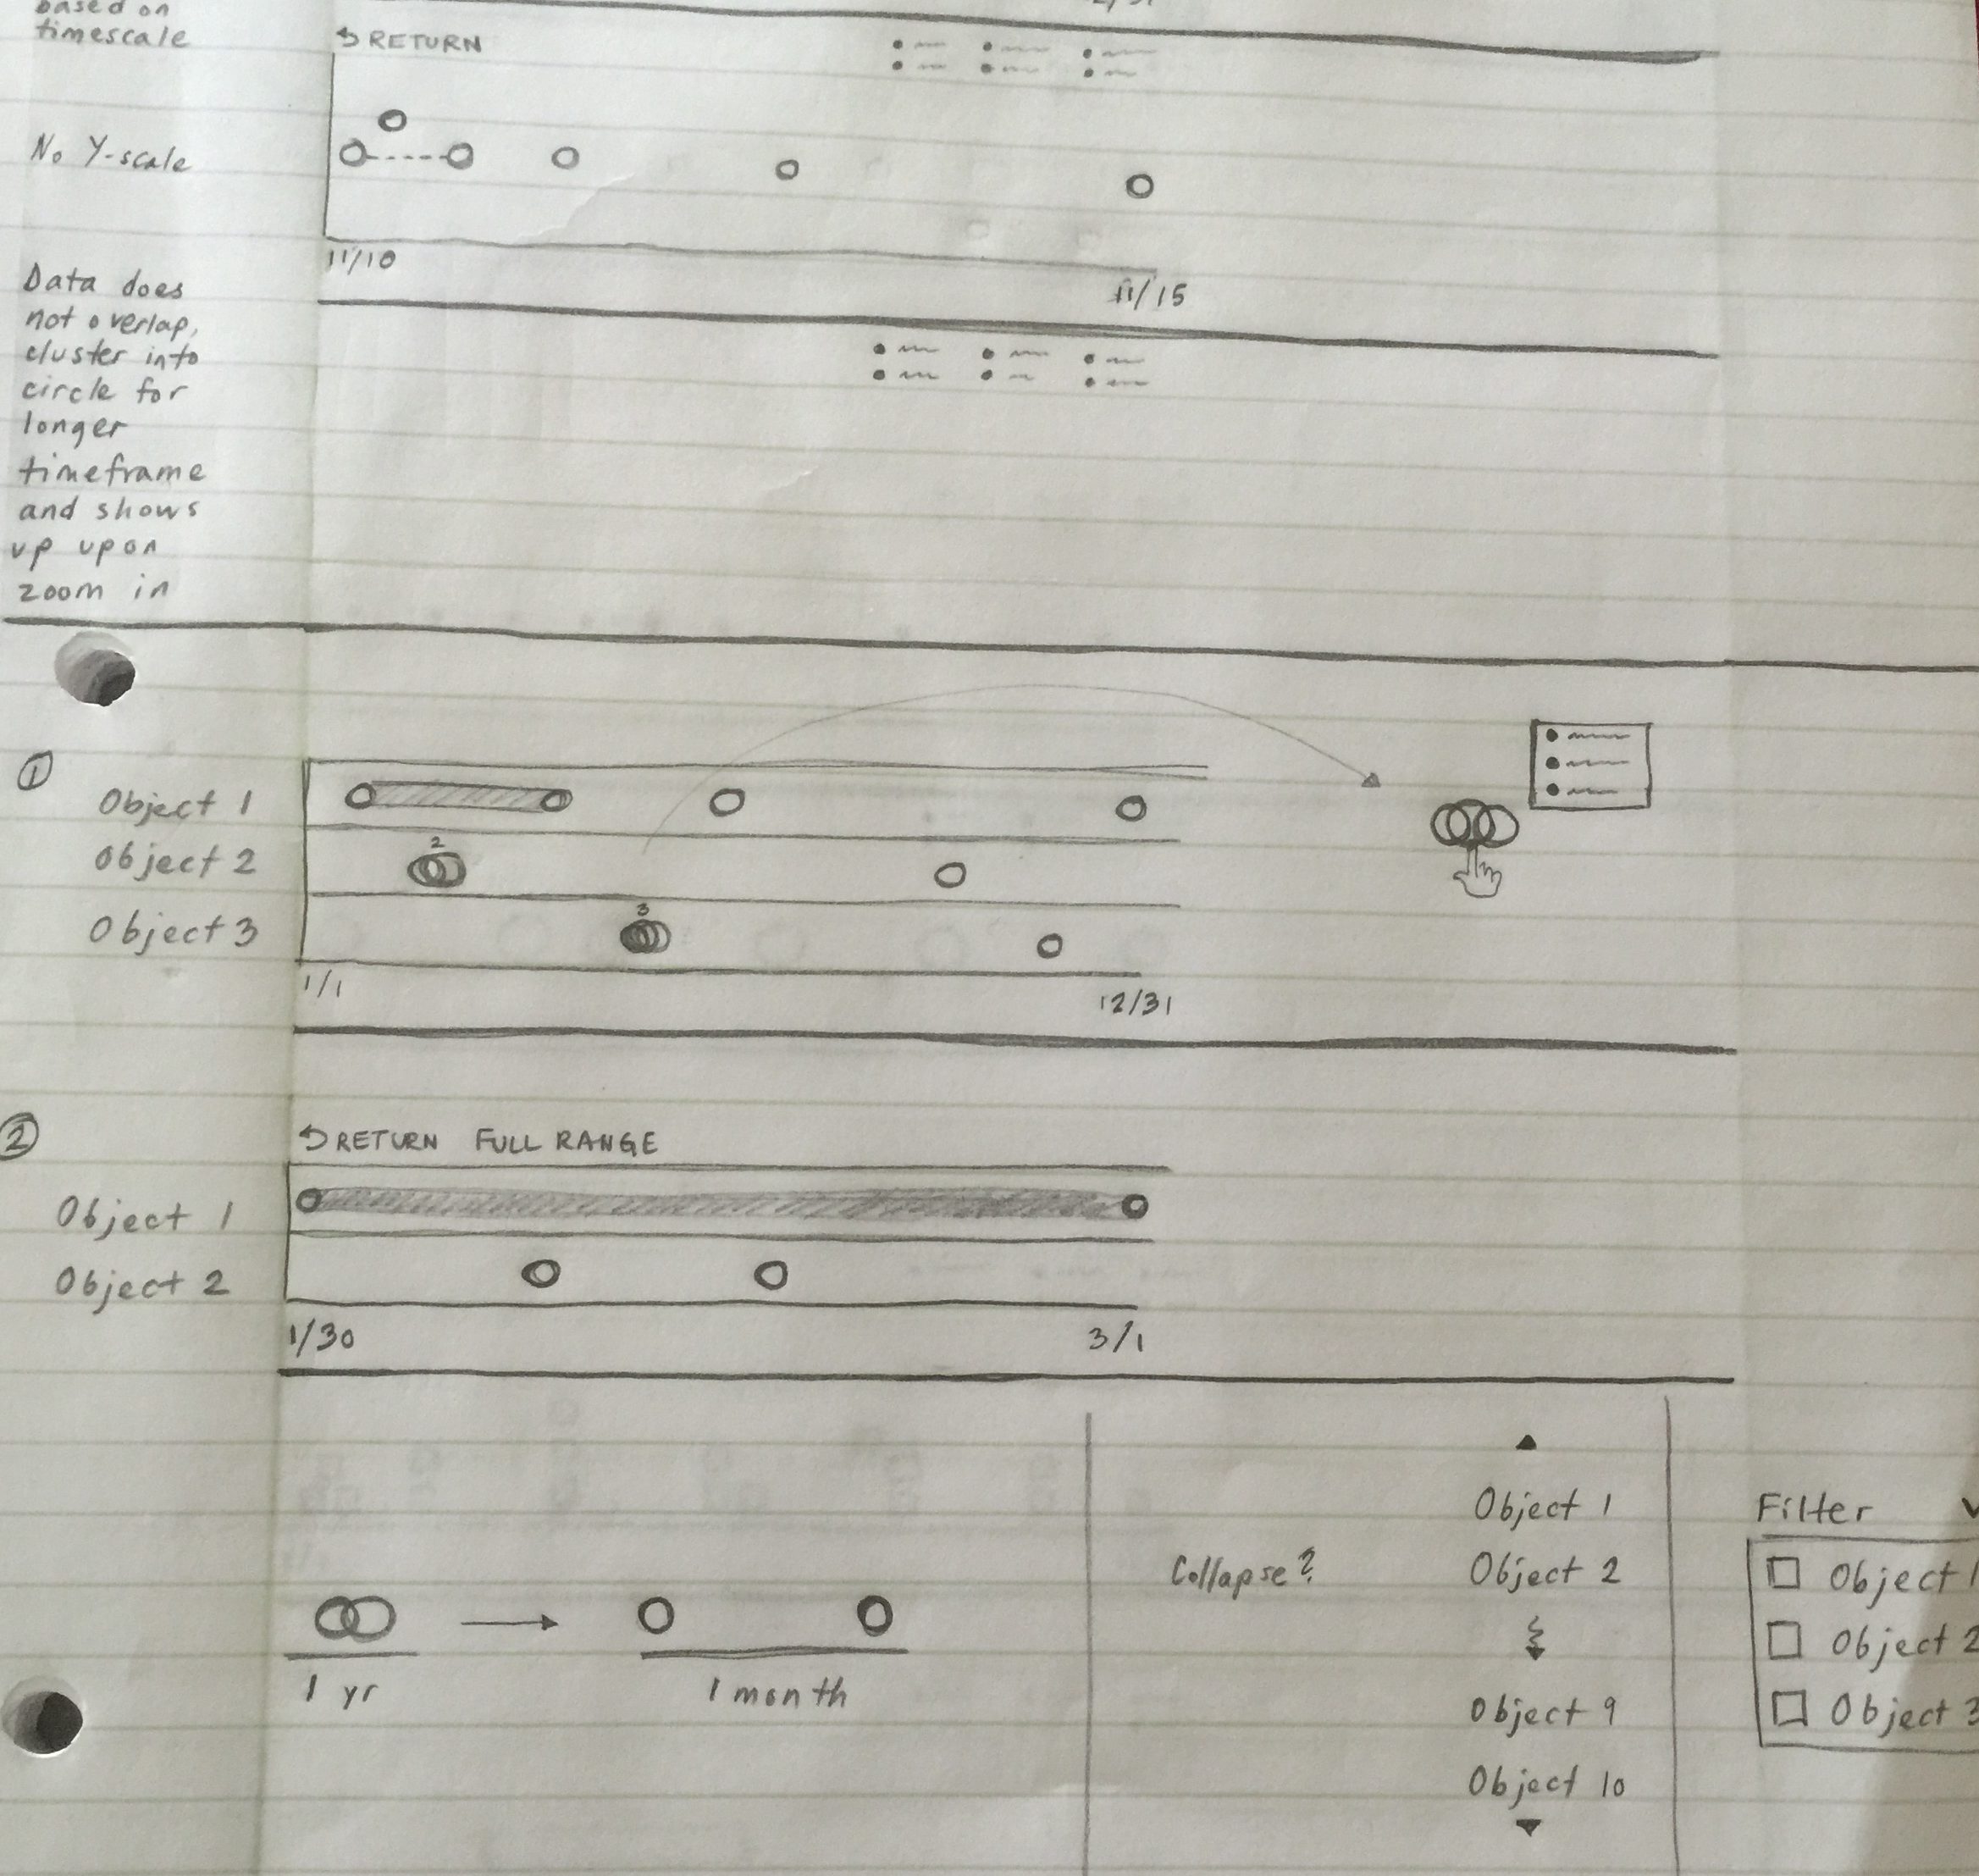 based on
timescale
RETURN
No Y-scale
11/10
11/15
Data does
not overlap,
cluster into
circle for
longer
timeframe
and shows
up upon
zoom in
1
Object 1
2
Object 2
3
Object 3
1/1
12/31
2
RETURN FULL RANGE
Object 1
Object 2
1/30
3/1
1 yr
1 month
Collapse?
Object 1
Object 2
Object 9
Object 10
Filter
Object 1
Object 2
Object 3